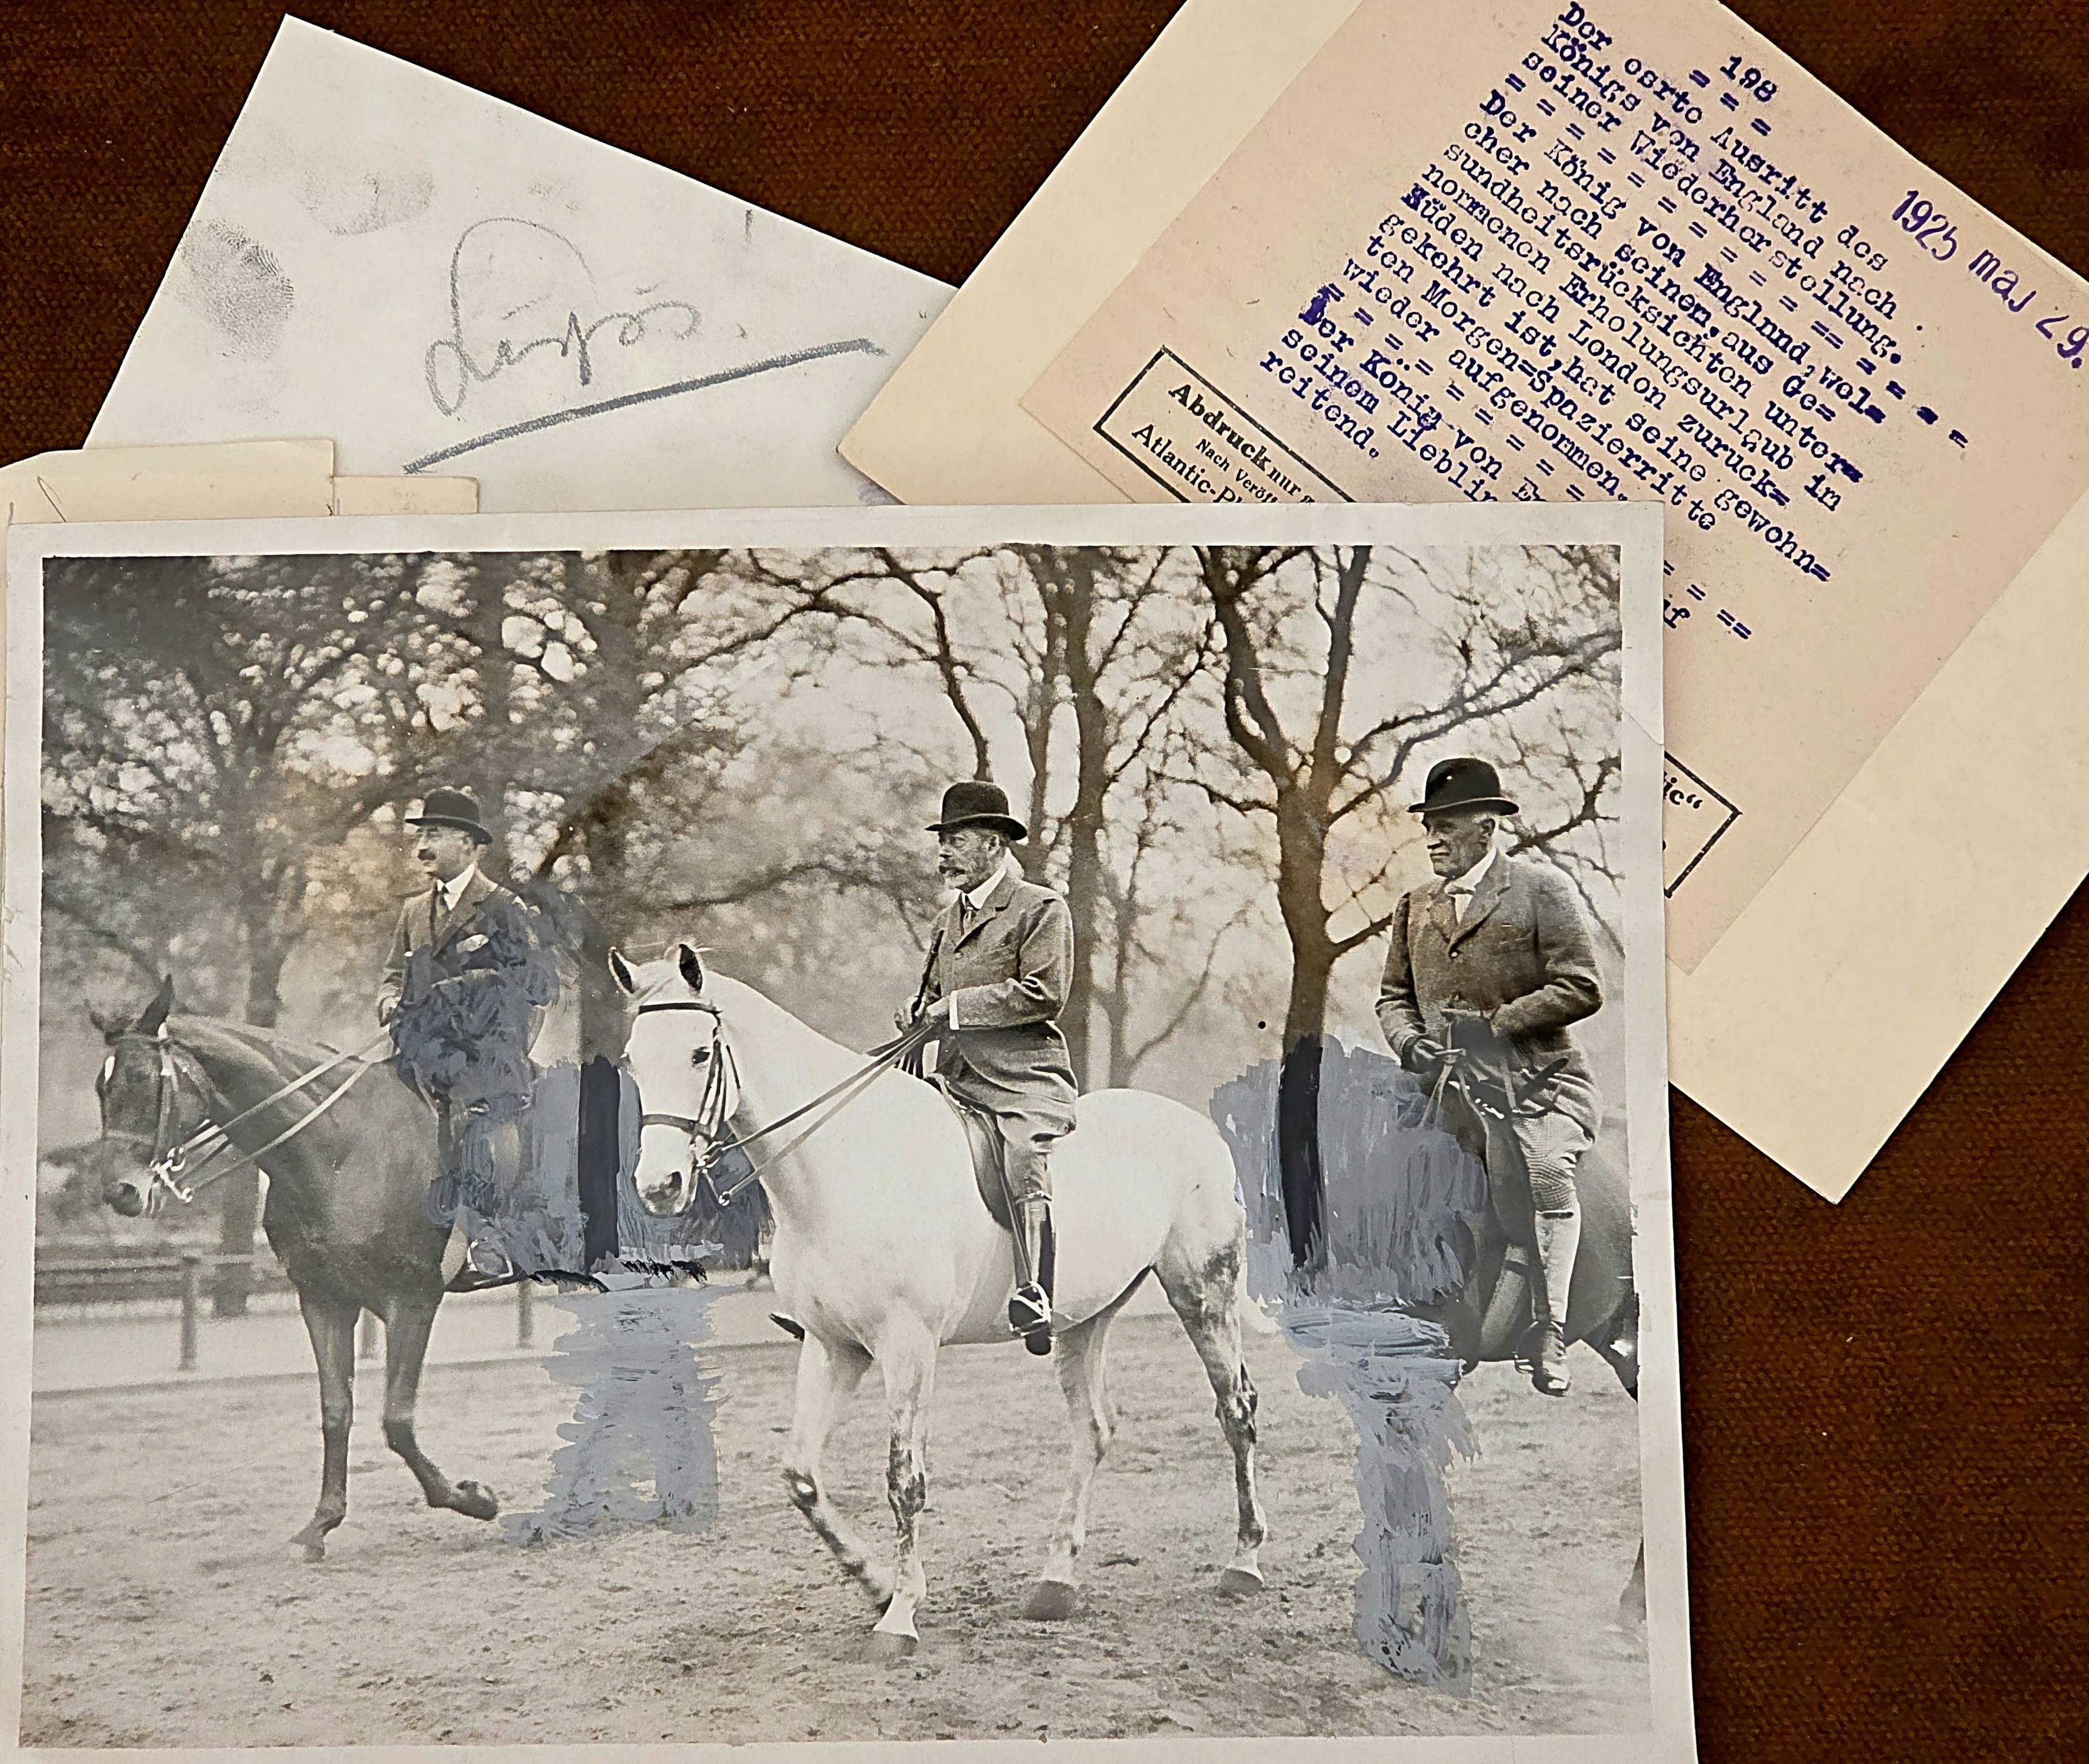 198
= = =
Der osrte Ausritt des
Königs von England nach
seiner Wiederherstellung.
= = = = = = = = = = == = = = =
Der König von Englnnd,wel=
cher nach seinen,aus Ge=
sundheitsrücksichten unter=
normenen Erholungsurlaub im
Süden nach London zurück=
gekehrt ist,hat seine gewohn=
ten Morgen=Spazierritte
wieder aufgenommen.
Der König von
seinem Lieblin
reitend.
1925 maj 29.
Abdruck nur
Nach
Atlantic-
tic“